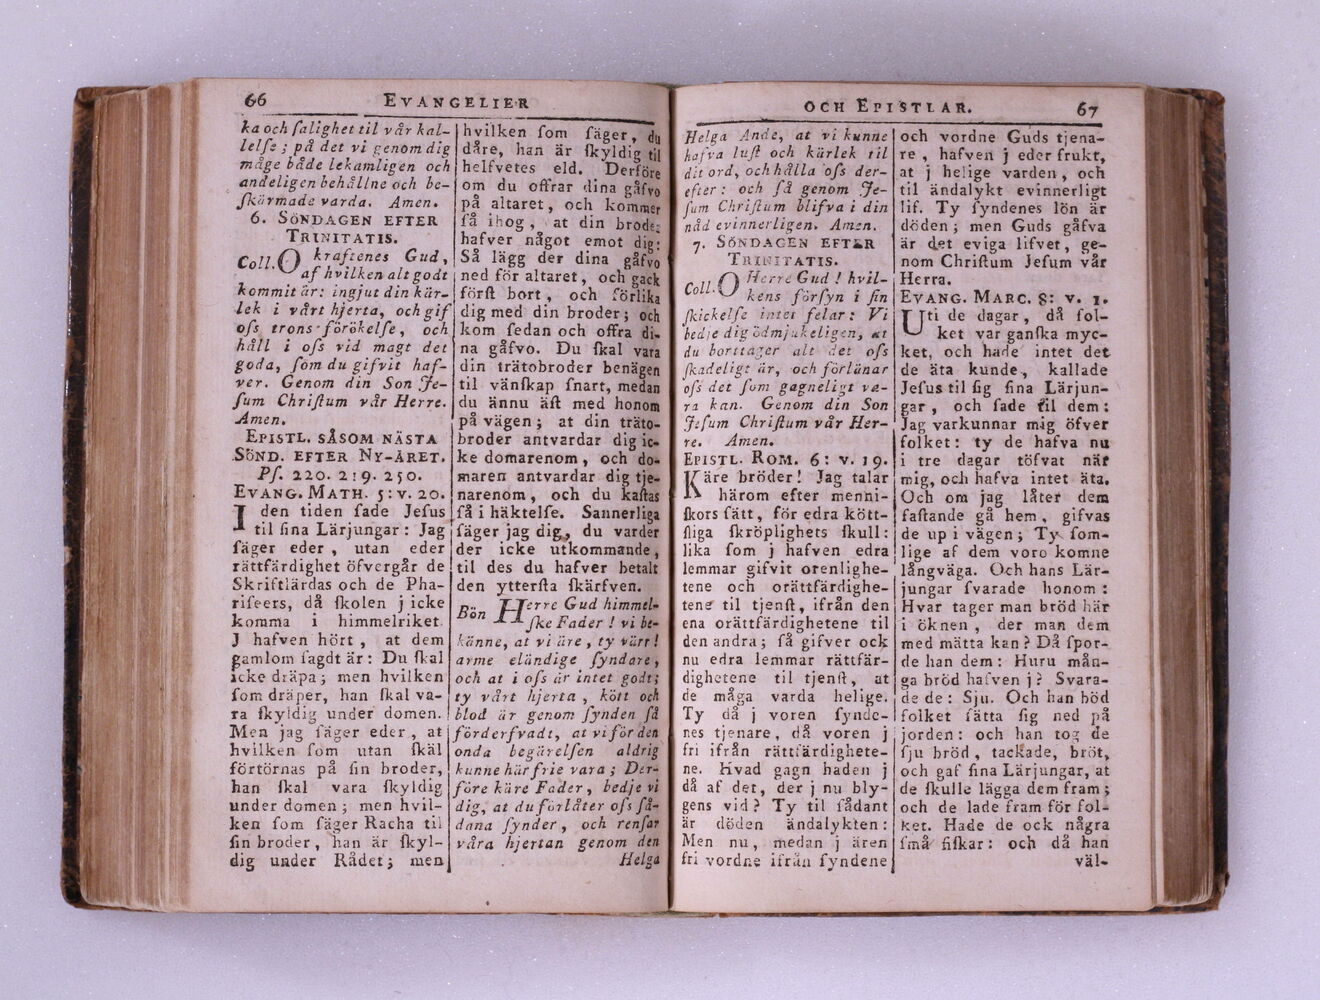 66 EVANGELIER
ka och ſalighet til vår kal-
lelſe; på det vi genom dig
måge både lekamligen och
andeligen behållne och be-
ſkärmade varda. Amen.
6. SÖNDAGEN EFTER
TRINITATIS.
Coll. O kraftenes Gud,
af hvilken alt godt
kommit är: ingjut din kär-
lek i vårt hjerta, och gif
oſs trons förökelſe, och
håll i oſs vid magt det
goda, ſom du gifvit haf-
ver. Genom din Son Je-
ſum Chriſtum vår Herre.
Amen.
EPISTL. SÅSOM NÄSTA
SÖND. EFTER NY-ÅRET.
Pſ. 220. 219. 250.
EVANG. MATH. 5: v. 20.
I den tiden ſade Jeſus
til ſina Lärjungar: Jag
ſäger eder, utan eder
rättfärdighet öfvergår de
Skriftlärdas och de Pha-
riſeers, då ſkolen j icke
komma i himmelriket.
J hafven hört, at dem
gamlom ſagdt är: Du ſkal
icke dräpa; men hvilken
ſom dräper, han ſkal va-
ra ſkyldig under domen.
Men jag ſäger eder, at
hvilken ſom utan ſkäl
förtörnas på ſin broder,
han ſkal vara ſkyldig
under domen; men hvil-
ken ſom ſäger Racha til
ſin broder, han är ſkyl-
dig under Rådet; men
hvilken ſom ſäger, du
dåre, han är ſkyldig til
helfvetes eld. Derföre
om du offrar dina gåfvo
på altaret, och kommer
ſå ihog, at din broder
hafver något emot dig:
Så lägg der dina gåfvo
ned för altaret, och gack
förſt bort, och förlika
dig med din broder; och
kom ſedan och offra di-
na gåfvo. Du ſkal vara
din trätobroder benägen
til vänſkap ſnart, medan
du ännu äſt med honom
på vägen; at din träto-
broder antvardar dig ic-
ke domarenom, och do-
maren antvardar dig tje-
narenom, och du kaſtas
ſå i häktelſe. Sannerliga
ſäger jag dig, du varder
der icke utkommande,
til des du hafver betalt
den ytterſta ſkärfven.
Bön Herre Gud himmel-
ſke Fader! vi be-
känne, at vi äre, ty värr!
arme eländige ſyndare,
och at i oſs är intet godt;
ty vårt hjerta, kött och
blod är genom ſynden ſå
förderfvadt, at vi för den
onda begärelſen aldrig
kunne här frie vara; Der-
före käre Fader, bedje vi
dig, at du förlåter oſs ſå-
dana ſynder, och renſar
våra hjertan genom den
Helga
OCH EPISTLAR. 67
Helga Ande, at vi kunne
hafva luſt och kärlek til
dit ord, och hålla oſs der-
efter: och ſå genom Je-
ſum Chriſtum blifva i din
nåd evinnerligen. Amen.
7. SÖNDAGEN EFTER
TRINITATIS.
Coll. O Herre Gud! hvil-
kens förſyn i ſin
ſkickelſe intet felar: Vi
bedje dig ödmjukeligen, at
du borttager alt det oſs
ſkadeligt är, och förlänar
oſs det ſom gagneligt va-
ra kan. Genom din Son
Jeſum Chriſtum vår Her-
re. Amen.
EPISTL. ROM. 6: v. 19.
Käre bröder! Jag talar
härom efter menni-
ſkors ſätt, för edra kött-
ſliga ſkröplighets ſkull:
lika ſom j hafven edra
lemmar gifvit orenlighe-
tene och orättfärdighe-
tene til tjenſt, ifrån den
ena orättfärdighetene til
den andra; ſå gifver ock
nu edra lemmar rättfär-
dighetene til tjenſt, at
de måga varda helige.
Ty då j voren ſynde-
nes tjenare, då voren j
fri ifrån rättfärdighete-
ne. Hvad gagn haden j
då af det, der j nu bly-
gens vid? Ty til ſådant
är döden ändalykten:
Men nu, medan j ären
fri vordne ifrån ſyndene
och vordne Guds tjena-
re, hafven j eder frukt,
at j helige varden, och
til ändalykt evinnerligt
lif. Ty ſyndenes lön är
döden; men Guds gåfva
är det eviga lifvet, ge-
nom Chriſtum Jeſum vår
Herra.
EVANG. MARC. 8: v. 1.
Uti de dagar, då fol-
ket var ganſka myc-
ket, och hade intet det
de äta kunde, kallade
Jeſus til ſig ſina Lärjun-
gar, och ſade til dem:
Jag varkunnar mig öfver
folket: ty de hafva nu
i tre dagar töfvat när
mig, och hafva intet äta.
Och om jag låter dem
faſtande gå hem, gifvas
de up i vägen; Ty ſom-
lige af dem voro komne
långväga. Och hans Lär-
jungar ſvarade honom:
Hvar tager man bröd här
i öknen, der man dem
med mätta kan? Då ſpor-
de han dem: Huru mån-
ga bröd hafven j? Svara-
de de: Sju. Och han böd
folket ſätta ſig ned på
jorden: och han tog de
ſju bröd, tackade, bröt,
och gaf ſina Lärjungar, at
de ſkulle lägga dem fram;
och de lade fram för fol-
ket. Hade de ock några
ſmå fiſkar: och då han
väl-